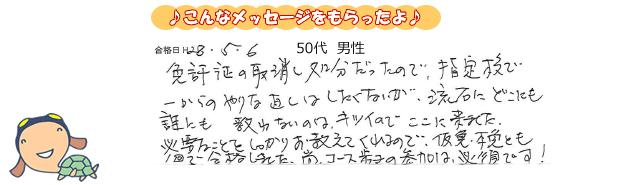 ♪こんなメッセージをもらったよ♪
合格日 H28.5.6 50代 男性
免許証の取消し処分だったので、指定校で
一からのやりな直しはしたくないが、流石にどこにも
誰にも 教われないのは、キツイので ここに来ました.
必要なことをしっかりお教えてくれるので、仮免・本免とも
1回で合格しました、尚、コース歩きの参加は、必須です!